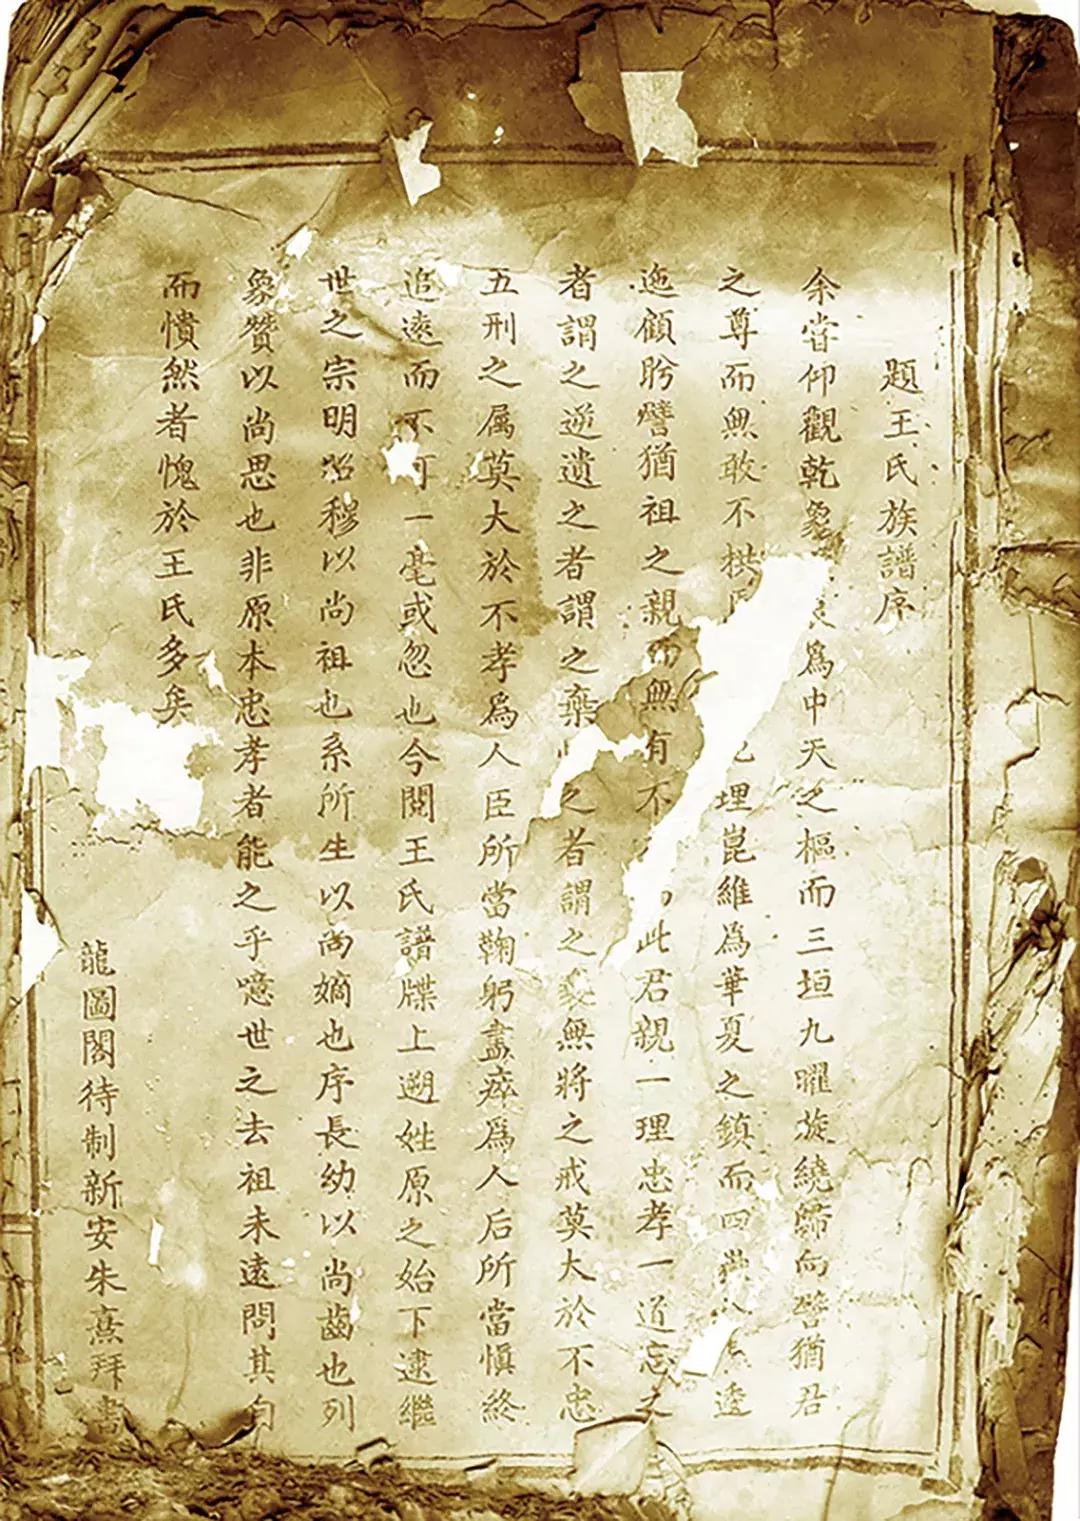 題王氏族譜序
余嘗仰觀乾象為中天之樞而三垣九曜旋繞歸向譬猶君
之尊而無敢不拱埋崑維為華夏之鎮而四逶
迤顧盼譬猶祖之親而無有不此君親一理忠孝一道忘之
者謂之逆遺之者謂之棄之者謂之無將之戒莫大於不忠
五刑之属莫大於不孝為人臣所當鞠躬盡瘁為人后所當慎終
追遠而不可一毫或忽也今閱王氏譜牒上遡姓原之始下逮繼
世之宗明昭穆以尚祖也系所生以尚嫡也序長幼以尚齒也列
象贊以尚思也非原本忠孝者能之乎噫世之去祖未遠問其自
而憒然者愧於王氏多矣
龍圖閣待制新安朱熹拜書